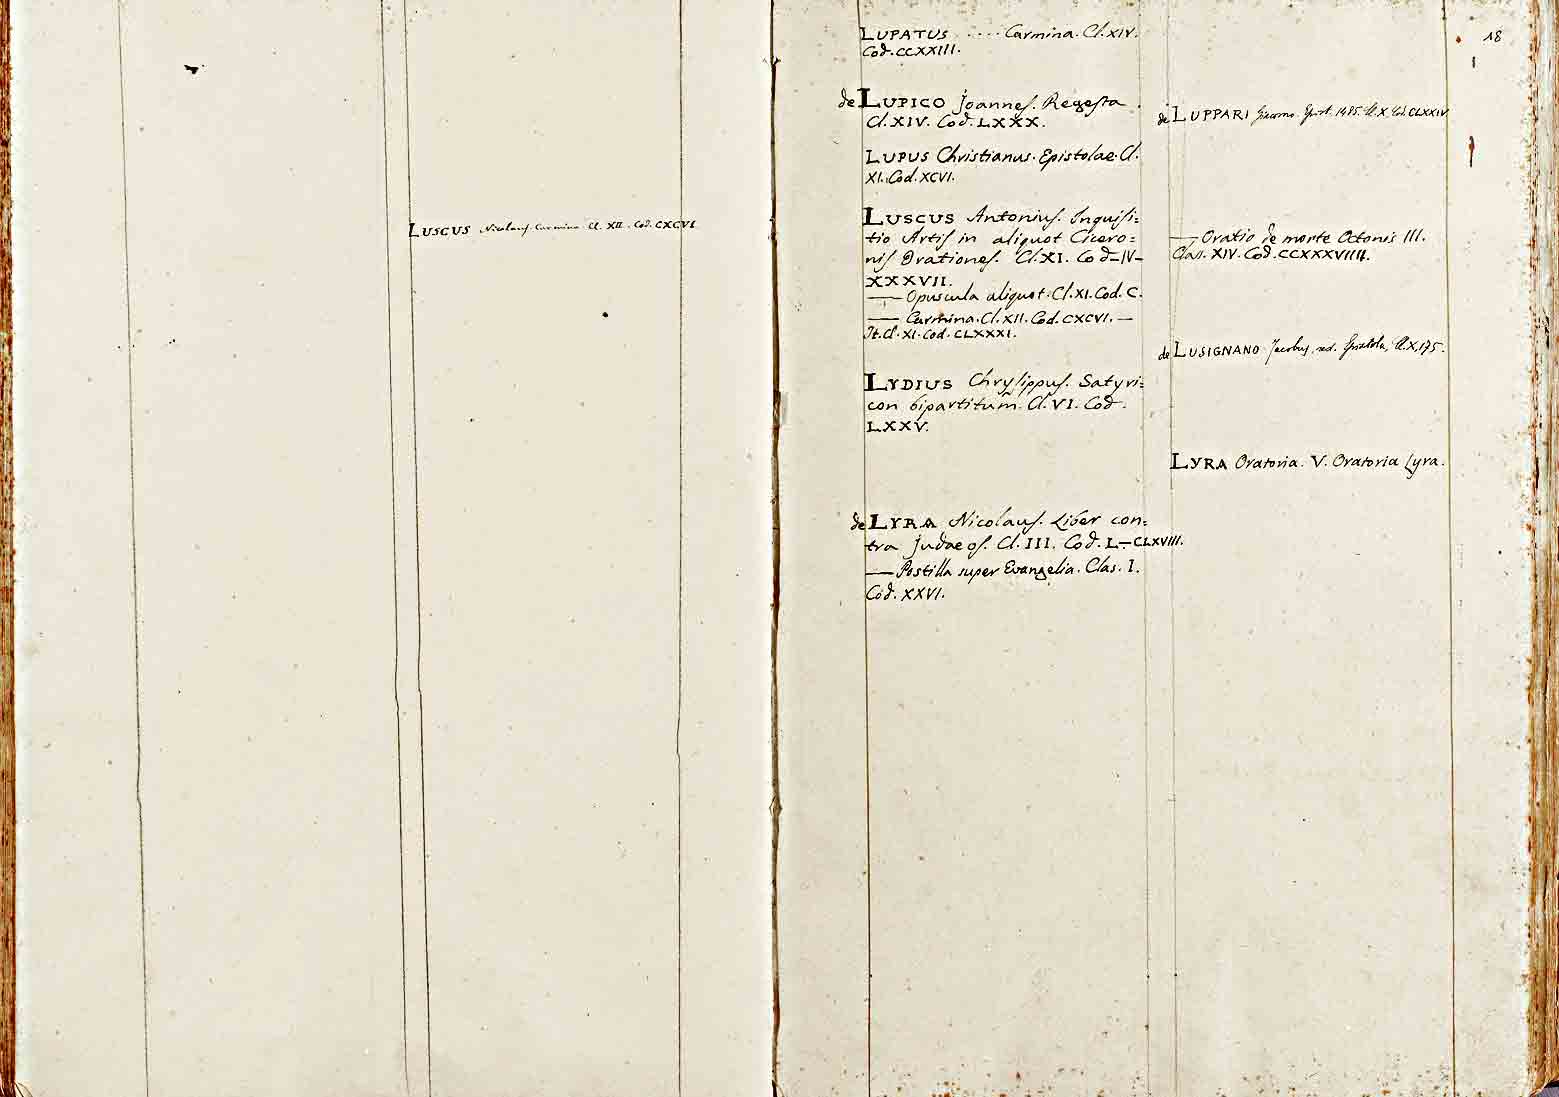 LUSCUS Nicolaus. Carmina Cl. XII. Cod. CXCVI
18
LUPATUS ..... Carmina. Cl. XIV.
Cod. CCXXIII.
de LUPICO Joannes. Regesta
Cl. XIV. Cod. LXXX.
LUPUS Christianus. Epistolae. Cl.
XI. Cod. XCVI.
LUSCUS Antonius. Inquisi=
tio Artis in aliquot Cicero=
nis Orationes. Cl. XI. Cod–IV–
XXXVII.
— Opuscula aliquot. Cl. XI. Cod. C.
— Carmina. Cl. XII. Cod. CXCVI. —
It. Cl. XI. Cod. CLXXXI.
LYDIUS Chrysippus. Satyri=
con bipartitum. Cl. VI. Cod.
LXXV.
de LYRA Nicolaus. Liber con=
tra Judaeos. Cl. III. Cod. L.—CLXVIII.
— Postilla super Evangelia. Clas. I.
Cod. XXVI.
de LUPPARI Giacomo. Epist. 1485. Cl. X. Cod. CLXXIV
— Oratio de morte Octonis III.
Clas. XIV. Cod. CCXXXVIIII.
de LUSIGNANO Jacobus, Epistola, Cl. X, 175.
LYRA Oratoria. V. Oratoria Lyra.